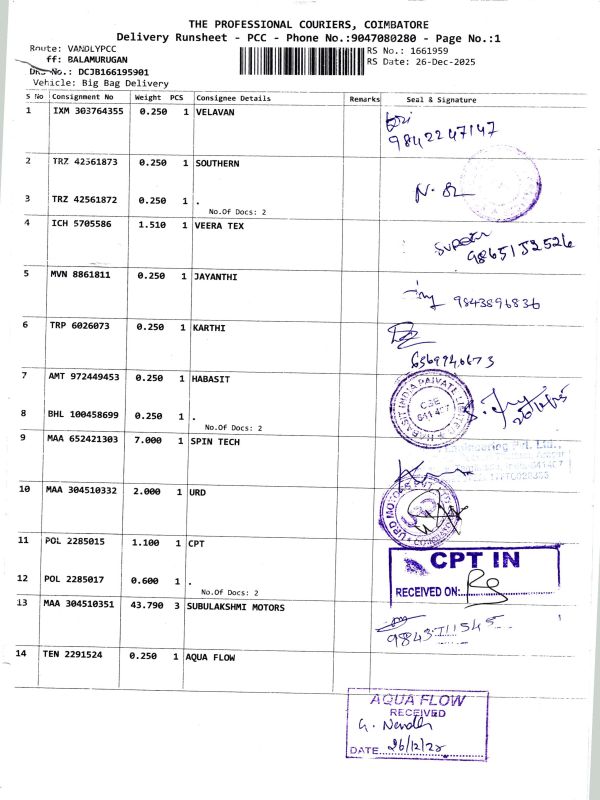 THE PROFESSIONAL COURIERS, COIMBATORE
Delivery Runsheet - PCC - Phone No.:9047080280 - Page No.:1
Route: VANDLYPCC
RS No.: 1661959
ff: BALAMURUGAN
RS Date: 26-Dec-2025
DRS No.: DCJB166195901
Vehicle: Big Bag Delivery
S No Consignment No Weight PCS Consignee Details Remarks Seal & Signature
1 IXM 303764355 0.250 1 VELAVAN
9842247147
2 TRZ 42561873 0.250 1 SOUTHERN
3 TRZ 42561872 0.250 1 .
No.Of Docs: 2
4 ICH 5705586 1.510 1 VEERA TEX
9865152526
5 MVN 8861811 0.250 1 JAYANTHI
9843896836
6 TRP 6026073 0.250 1 KARTHI
7 AMT 972449453 0.250 1 HABASIT
HABASIT INDIA PRIVATE LIMITED
CBE
641 407
8 BHL 100458699 0.250 1 .
No.Of Docs: 2
9 MAA 652421303 7.000 1 SPIN TECH
Engineering Pvt. Ltd.,
10 MAA 304510332 2.000 1 URD
URD MOTORS PVT LTD
URD
11 POL 2285015 1.100 1 CPT
CPT IN
RECEIVED ON:
12 POL 2285017 0.600 1 .
No.Of Docs: 2
13 MAA 304510351 43.790 3 SUBULAKSHMI MOTORS
14 TEN 2291524 0.250 1 AQUA FLOW
AQUA FLOW
RECEIVED
DATE 26/12/25